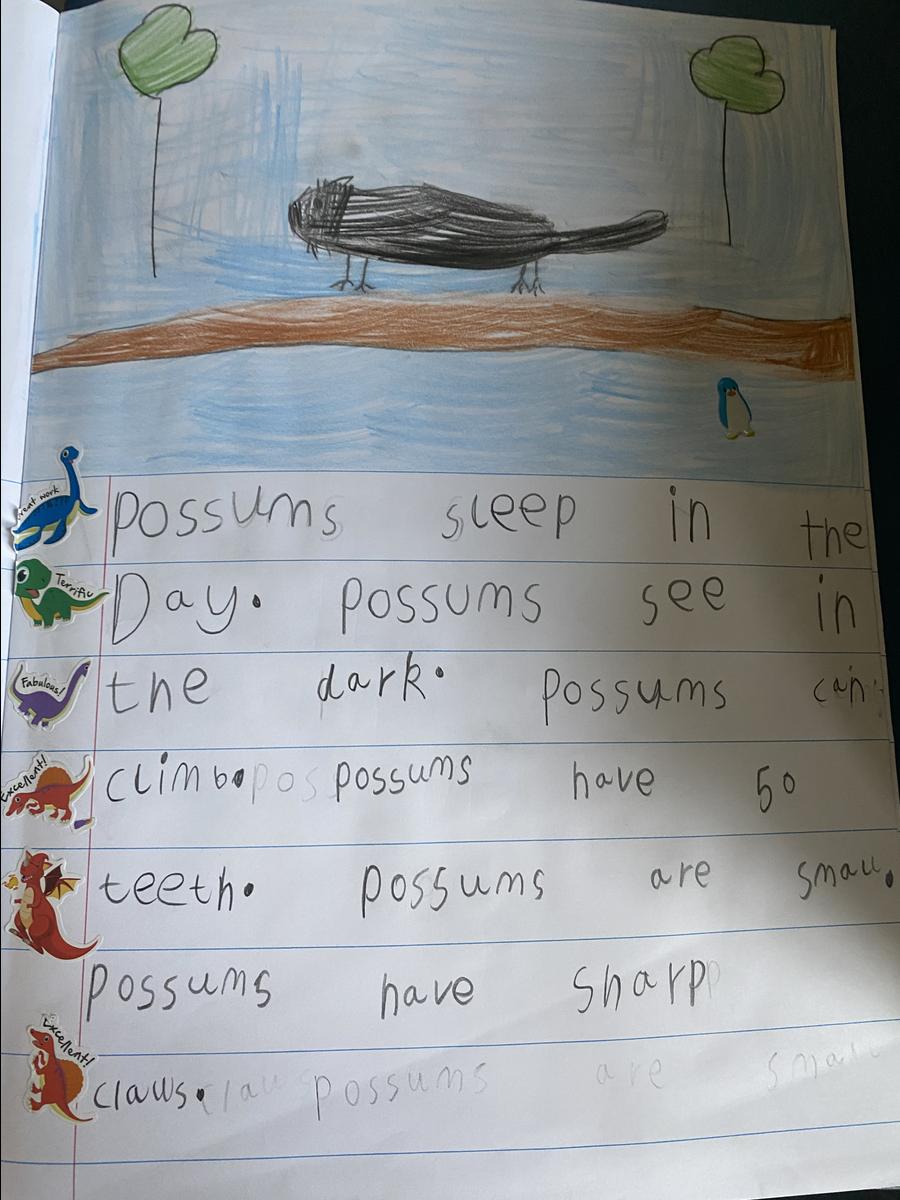 Great work
possums sleep in the
Terrific
Day. possums see in
Fabulous!
the dark. possums can
Excellent!
climb. pos possums have 50
teeth. possums are small.
possums have sharp
Excellent!
claws. claw possums are small